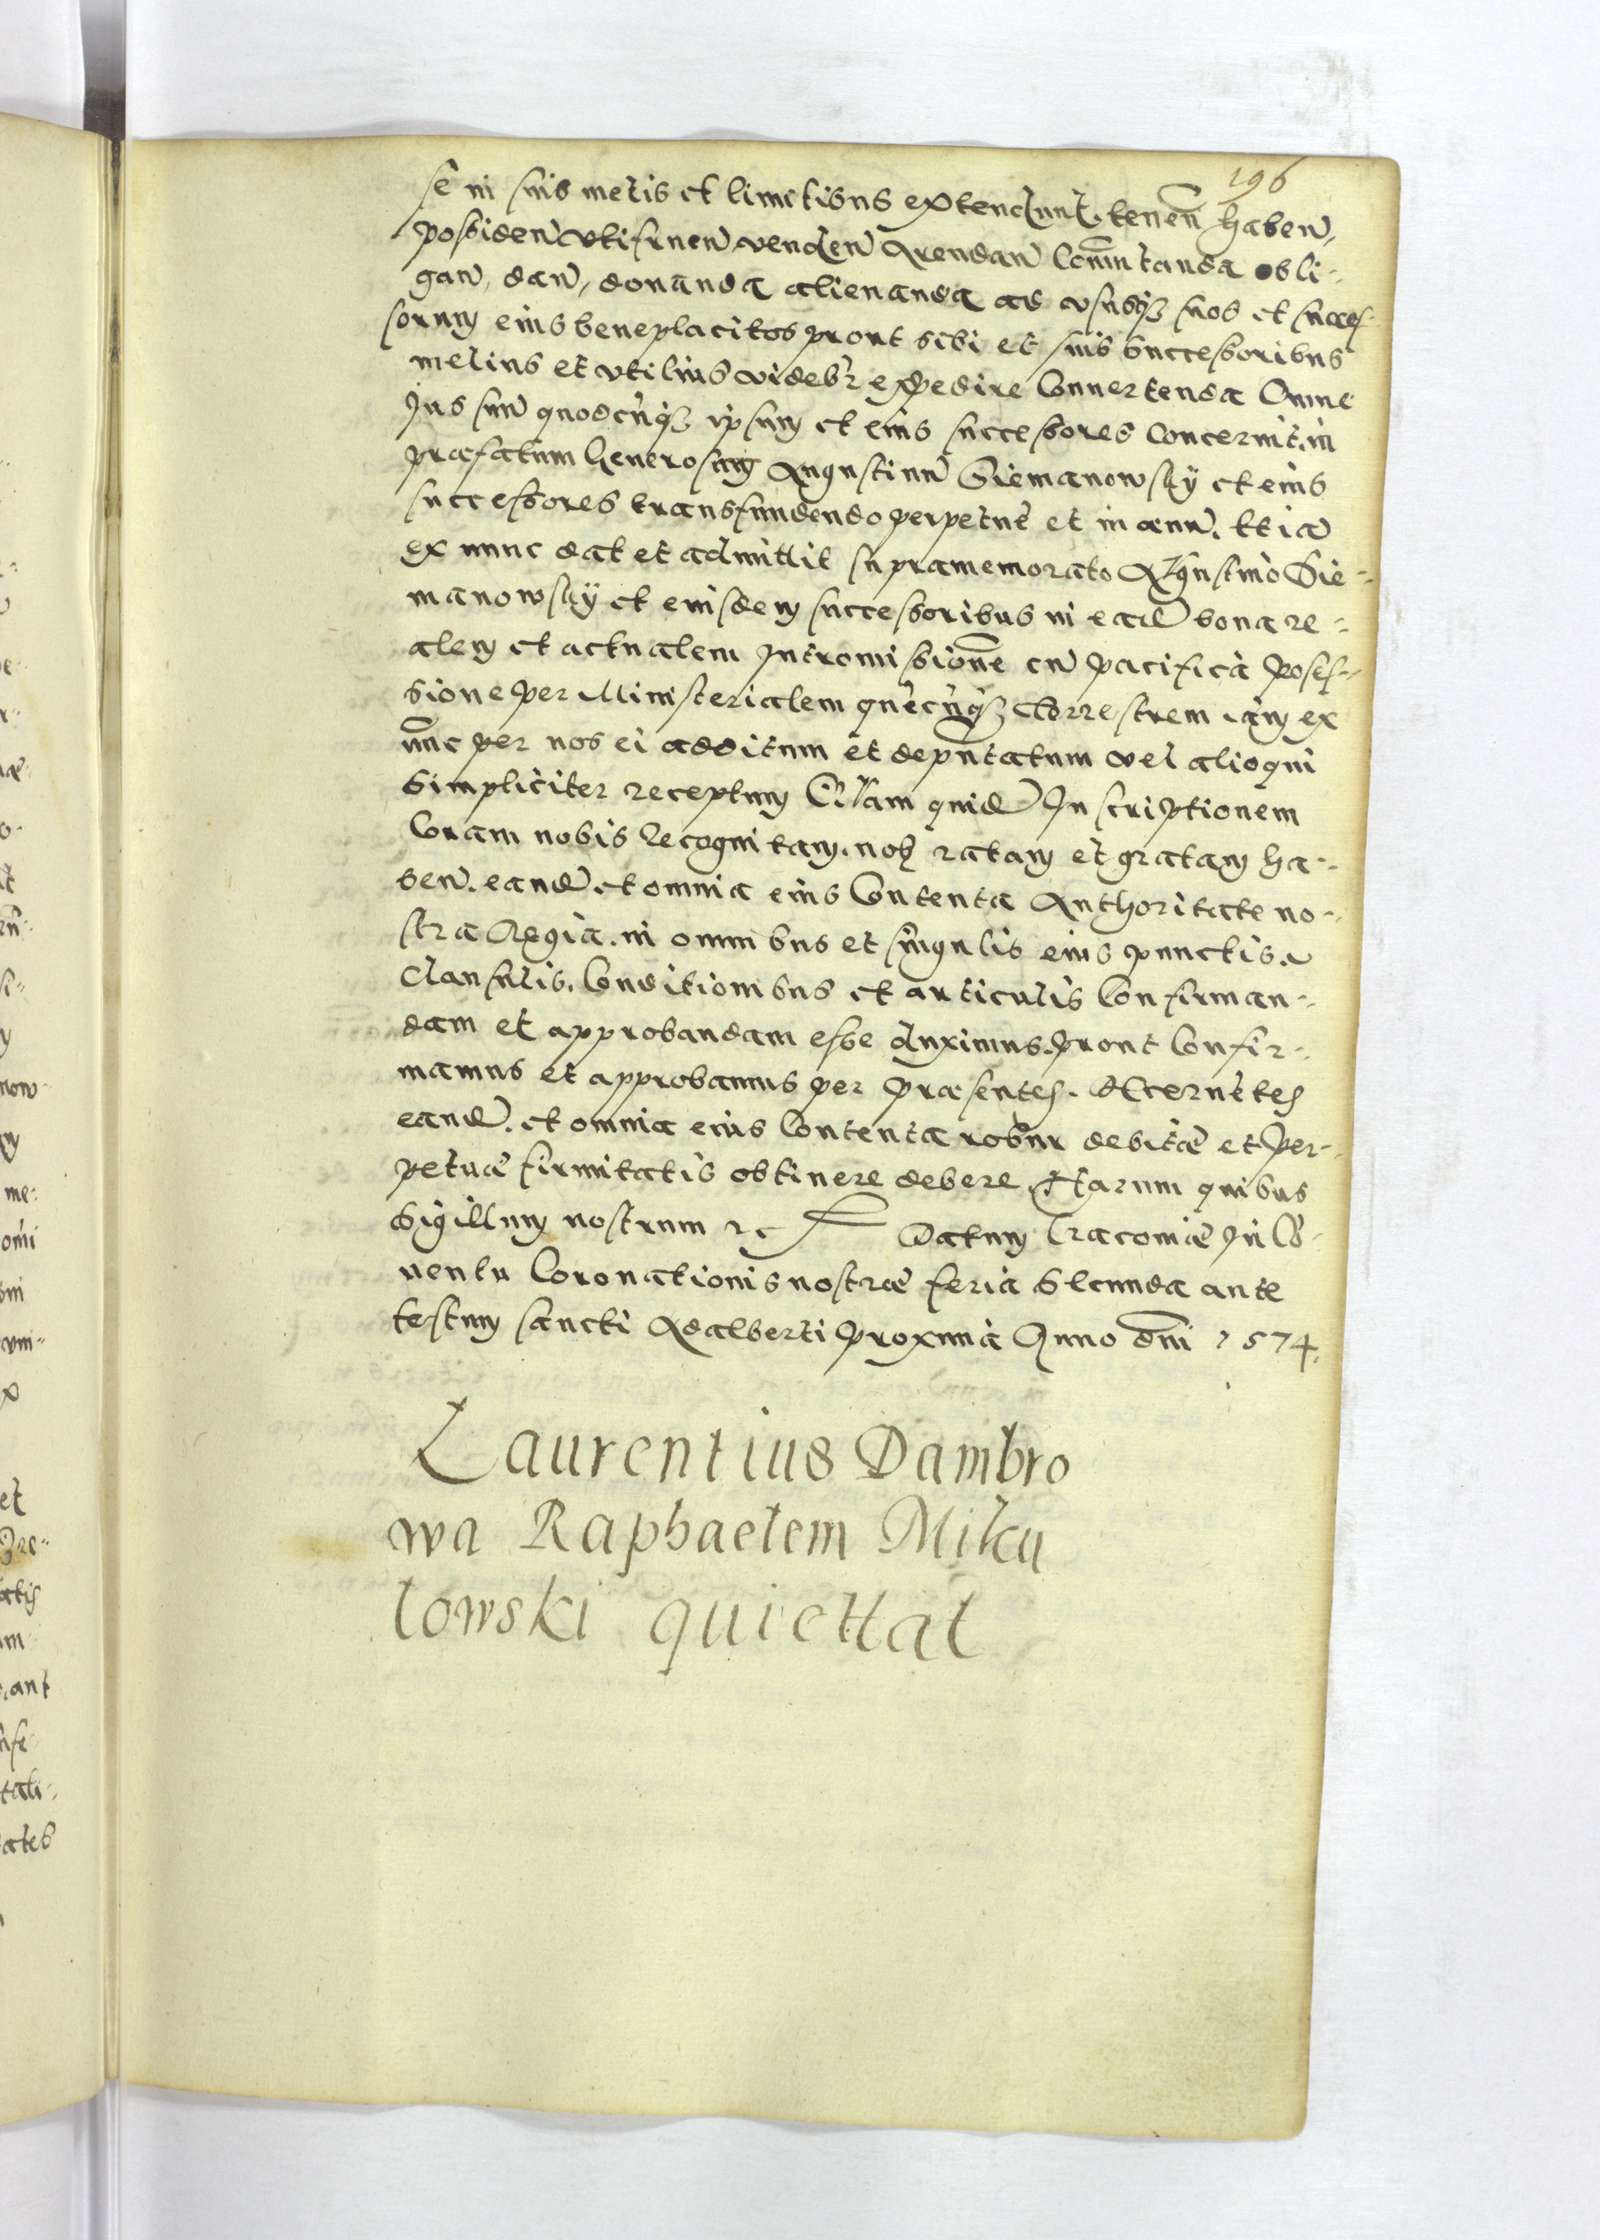 196
se in suis metis et limitibus extendunt. tenen̄ haben̄,
possiden̄ utifruen̄ venden̄ Arendan̄ Com̄utanda obli-
gan̄, dan̄, donanda alienanda ad ususq3 suos et succes-
sorum eius beneplacitos prout sibi et suis Successoribus
melius et utilius videbr̄ expedire Convertenda Omne
Jus suū quodcūq3 ipsum et eius successores Concernit, in
præfatum Generosum Augustinū Siemanowsky et eius
successores transfundendo perpetuè et in ævū. Etiā
ex nunc dat et admittit supramemorato Augustino Sie-
manowsky et eiusdem successoribus in eadē bona re-
alem et actualem Intromissionē cū pacifica posses-
sione per Ministerialem quēcūq3 Terrestrem iam ex
nunc per nos ei additum et deputatum vel alioqui
Simpliciter receptum Quam quidē Inscriptionem
Coram nobis recognitam. nos ratam et gratam ha-
ben̄. eandē et omnia eius Contenta Authoritate no-
stra Regia. in omnibus et singulis eius punctis.
Clausulis. Conditionibus et articulis Confirman-
dam et approbandam esse duximus. prout Confir-
mamus et approbamus per præsentes. Decernētes
eandē. et omnia eius Contenta robur debitæ et per-
petuæ firmitatis obtinere debere. Harum quibus
Sigillum nostrum etc Datum Cracoviæ In Cō-
ventu Coronationis nostræ feria Secunda ante
festum sancti Adalberti proxima Anno Dn̄i 1574.
Laurentius Dambro
wa Raphaelem Miku
lowski quiettat